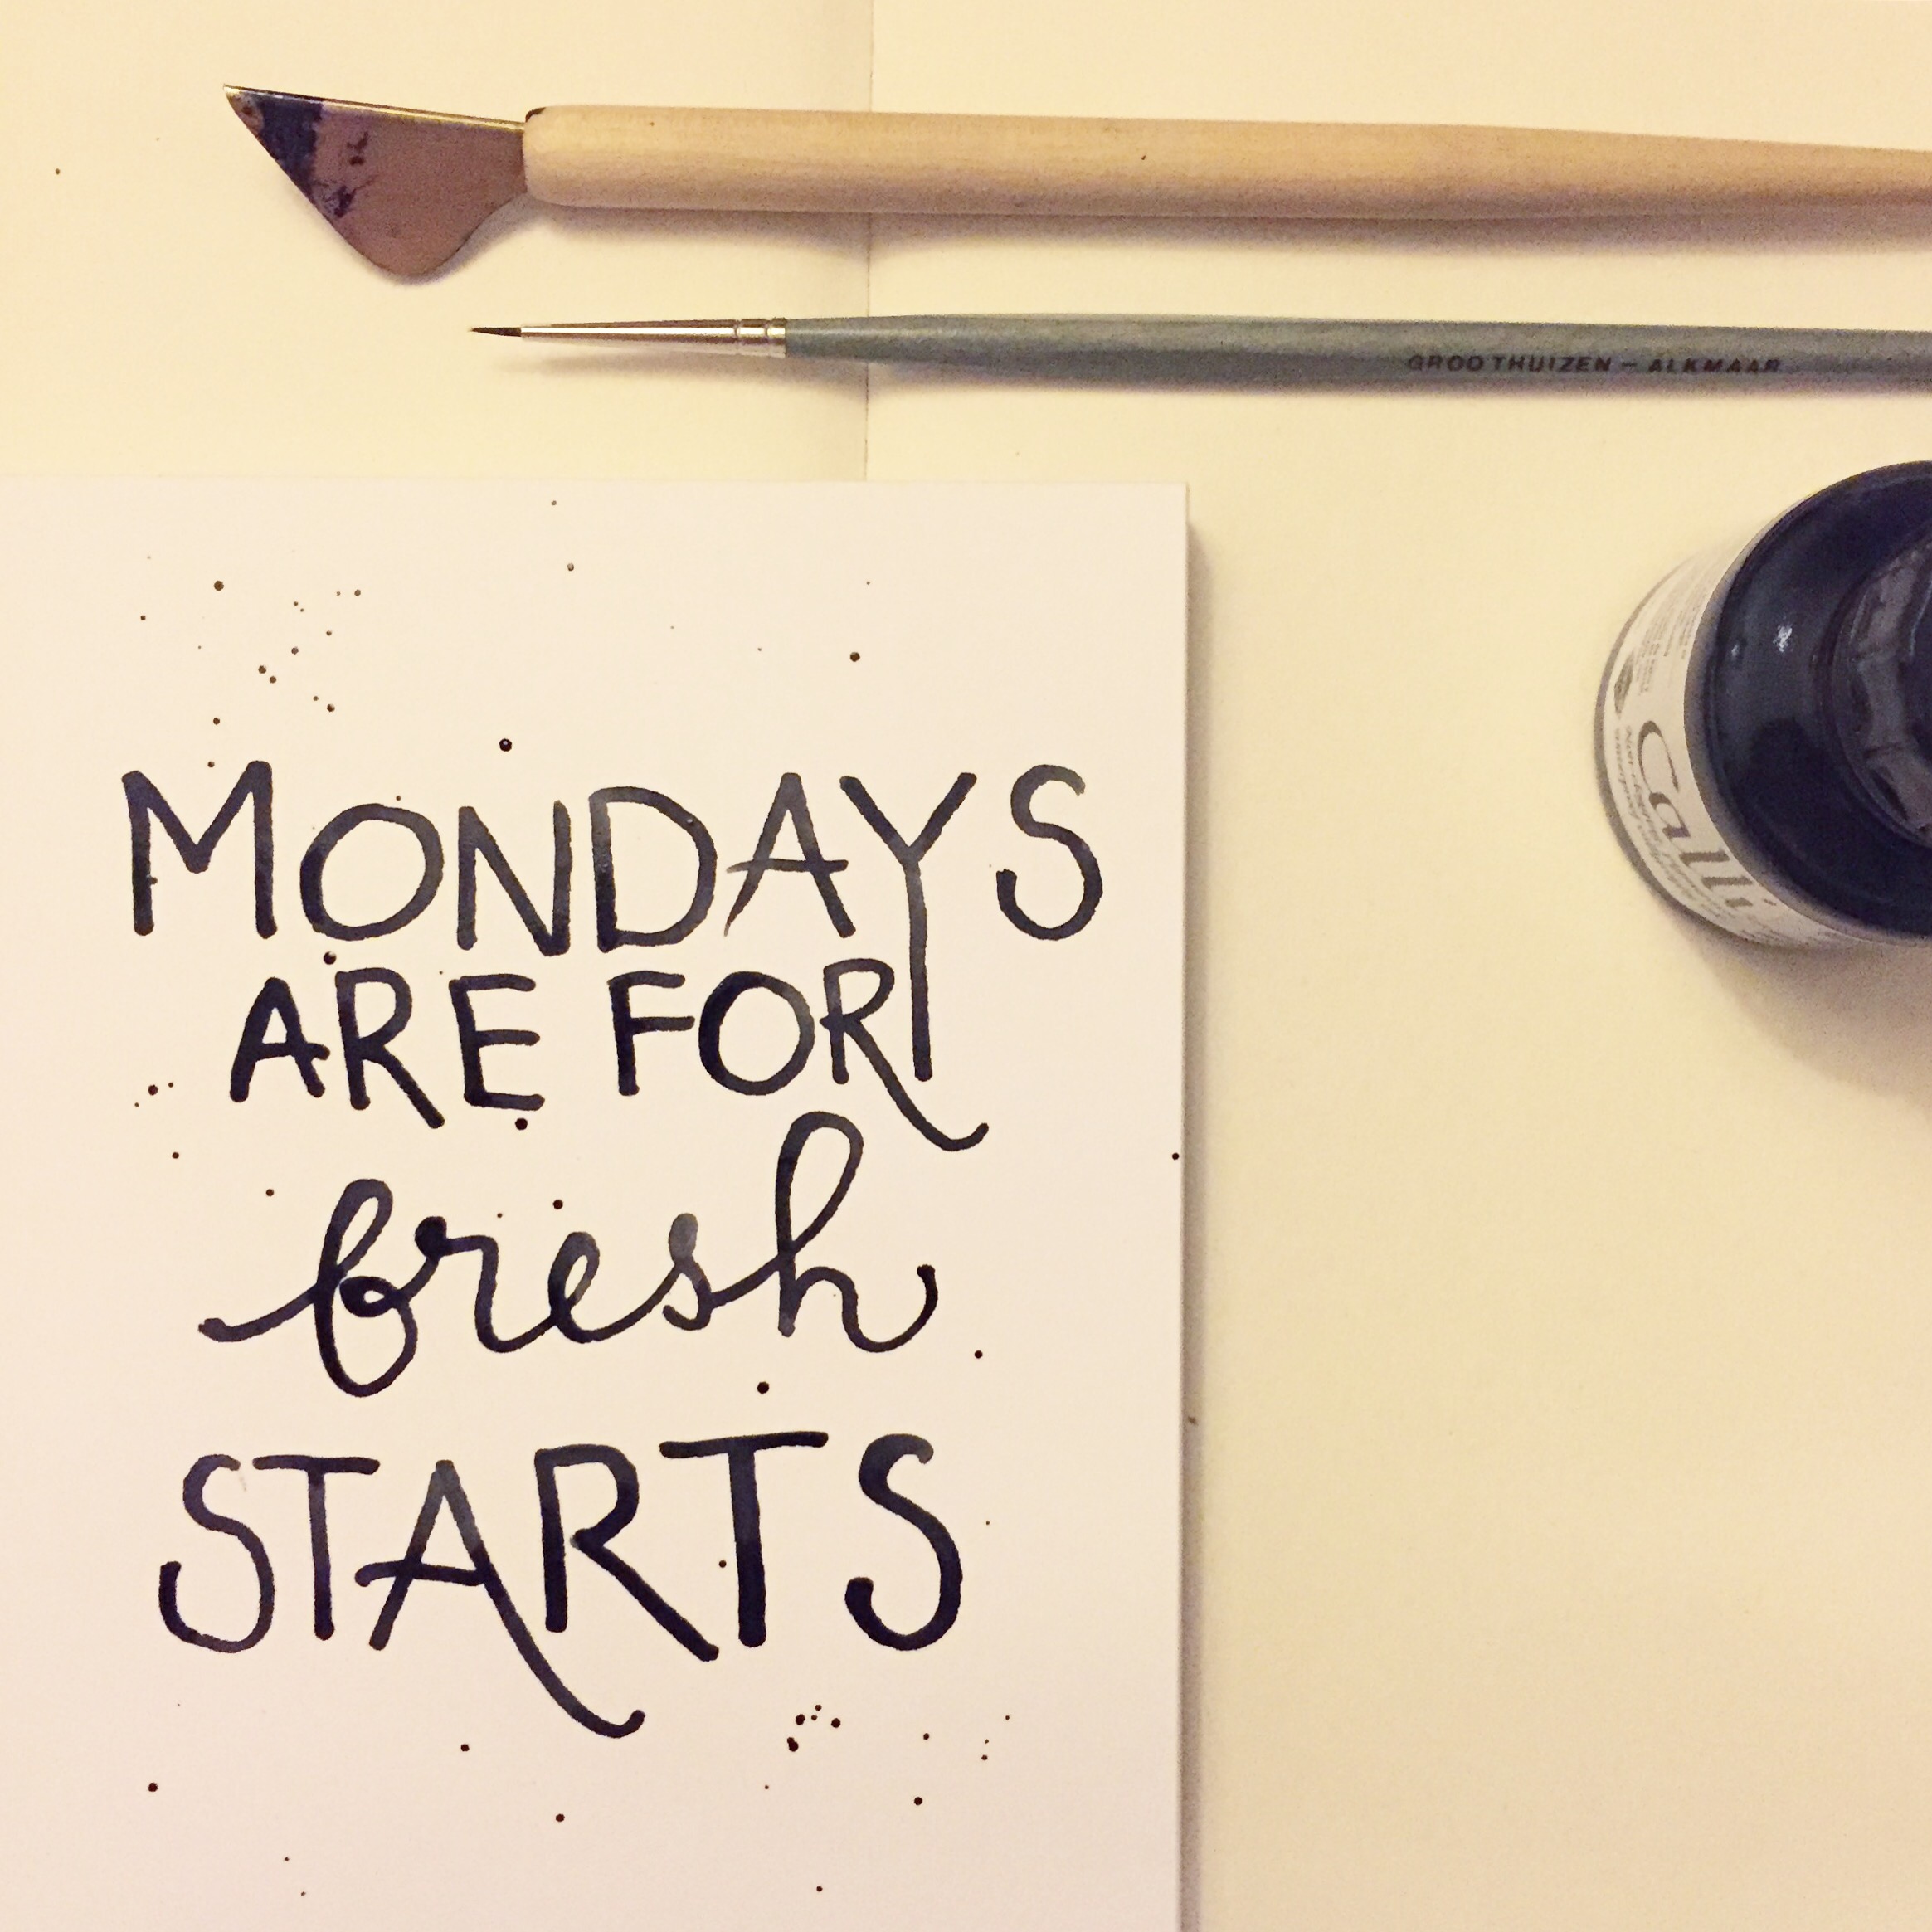 GROOTHUIZEN – ALKMAAR
Calli
MONDAYS
ARE FOR
fresh
STARTS